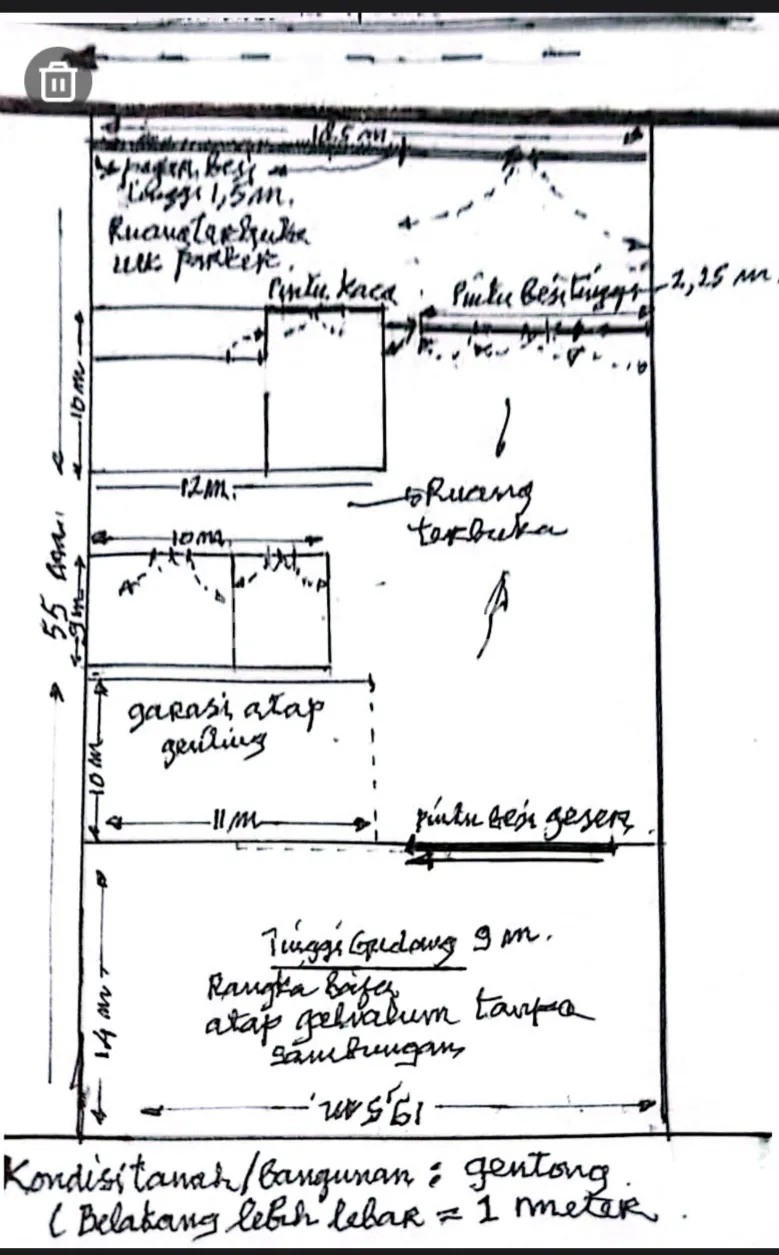 18.5 m
pagar besi
tinggi 1,5 m.
Ruang terbuka
utk parkir.
Pintu kaca
Pintu besi tinggi 2,25 m
10 m
12 m.
Ruang
terbuka
10 m
55 m
9 m
garasi atap
genting
10 m
11 m
pintu besi geser
Tinggi Gudang 9 m.
Rangka Baja
atap galvalum tanpa
sambungan
14 m
19,5 m.
Kondisi tanah/bangunan : gentong.
( Belakang lebih lebar = 1 meter .